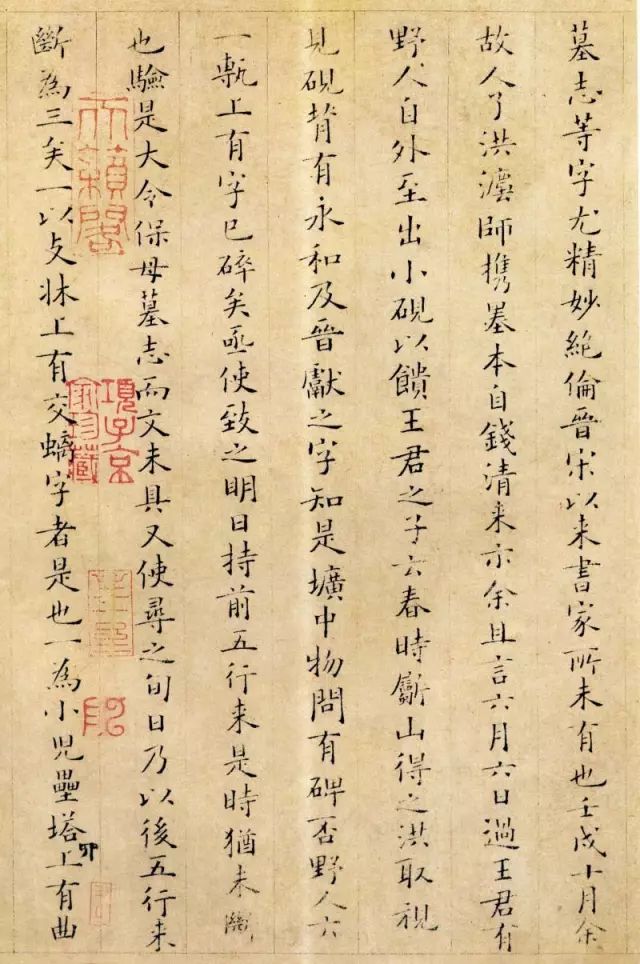 墓志等字尤精妙絶倫晉宋以来書家所未有也壬戌十月余
故人了洪濃師携墨本自錢清来示余且言六月六日過王君有
野人自外至出小硯以饋王君之子云春時斸山得之洪取視
見硯背有永和及晉獻之字知是壙中物問有碑否野人云
一甎上有字已碎矣亟使致之明日持前五行来是時猶未斷
也驗是大令保母墓志而文未具又使尋之旬日乃以後五行来
斷為三矣一以支牀上有交螭字者是也一為小児壘塔上有曲
卯
天籟閣
項子京
家珍藏